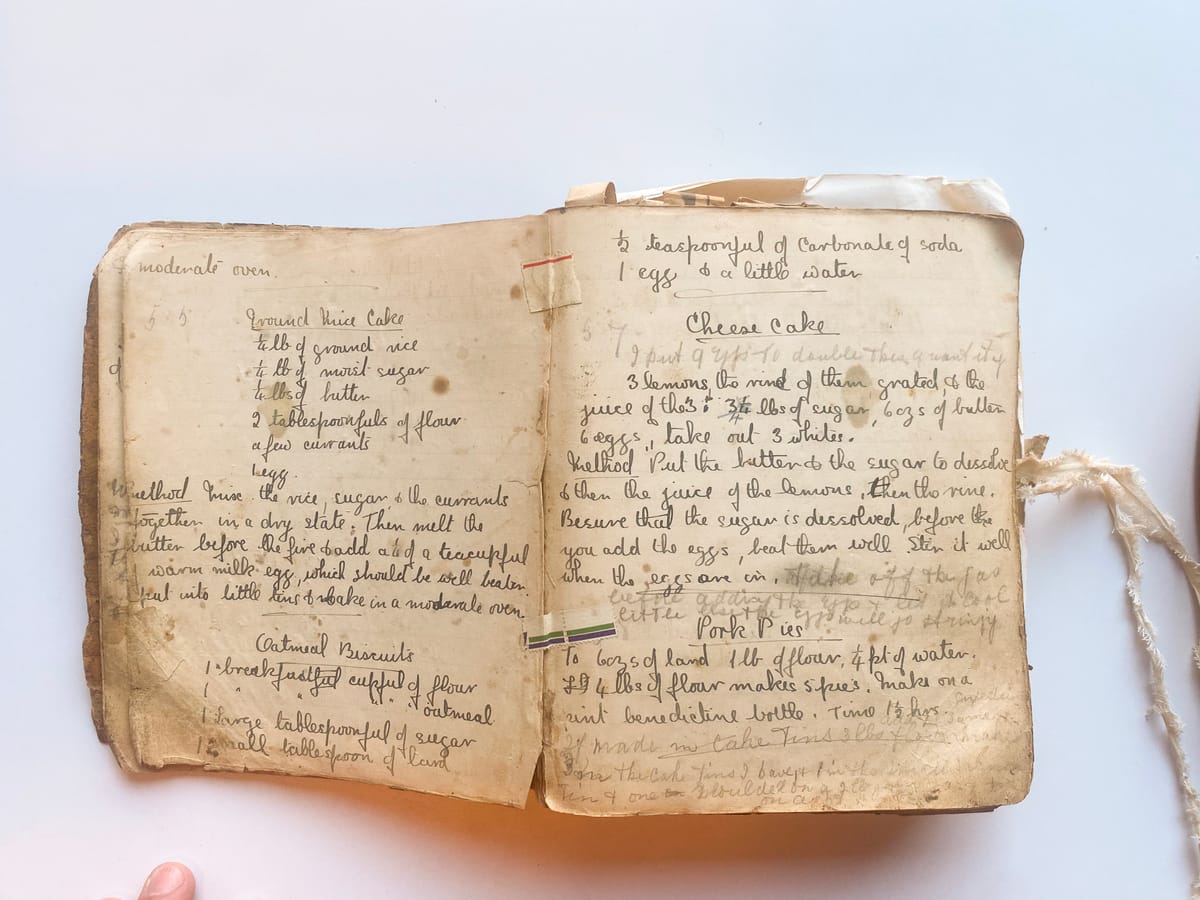 moderate oven.
55
Ground Rice Cake
¼ lb of ground rice
¼ lb of moist sugar
¼ lbs of butter
2 tablespoonfuls of flour
a few currants
1 egg.
Method Mix the rice, sugar & the currants
together in a dry state. Then melt the
butter before the fire & add a ¼ of a teacupful
of warm milk egg, which should be well beaten
put into little tins & bake in a moderate oven.
Oatmeal Biscuits
1 breakfastful cupful of flour
1 " " " oatmeal
1 Large tablespoonful of sugar
1 Small tablespoon of lard
½ teaspoonful of carbonate of soda
1 egg & a little water
Cheese Cake
57
I put 9 eggs to double this quantity
3 lemons, the rind of them grated, & the
juice of the 3; ¾ lbs of sugar, 6 ozs of butter
6 eggs, take out 3 whites.
Method Put the butter & the sugar to dissolve
& then the juice of the lemons, then the rine.
Be sure that the sugar is dessolved, before the
you add the eggs, beat them well Ster it well
when the eggs are in. Take off the gas
before adding the eggs & let it cool
little else the eggs will go stringy
Pork Pies
To 6 ozs of lard 1 lb of flour, ¼ pt of water.
4 lbs of flour makes 5 pies. Make on a
pint benedictine bottle. Time 1½ hrs.
If made in Cake Tins 3 lbs flour
the Cake Tins I have
Tin & one moulded on
on a